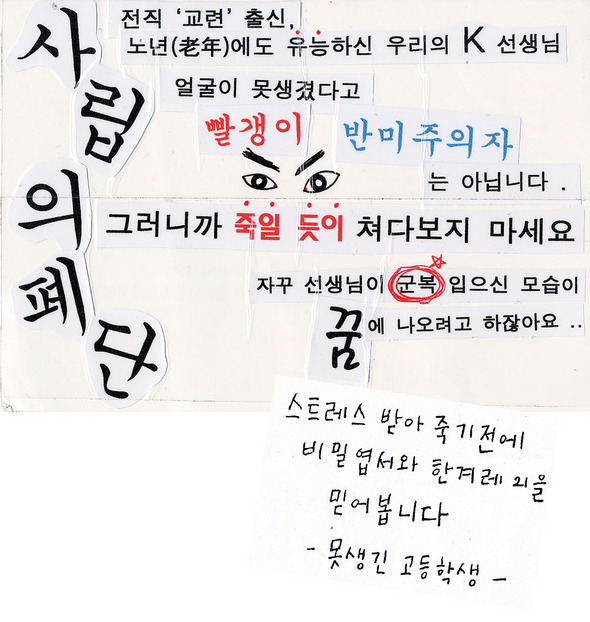 사립의 폐단
전직 '교련' 출신,
노년(老年)에도 유능하신 우리의 K 선생님
얼굴이 못생겼다고
빨갱이 반미주의자
는 아닙니다 .
그러니까 죽일 듯이 쳐다보지 마세요
자꾸 선생님이 군복 입으신 모습이
꿈에 나오려고 하잖아요 ..
스트레스 받아 죽기전에
비밀엽서와 한겨레 21을
믿어봅니다
- 못생긴 고등학생 -